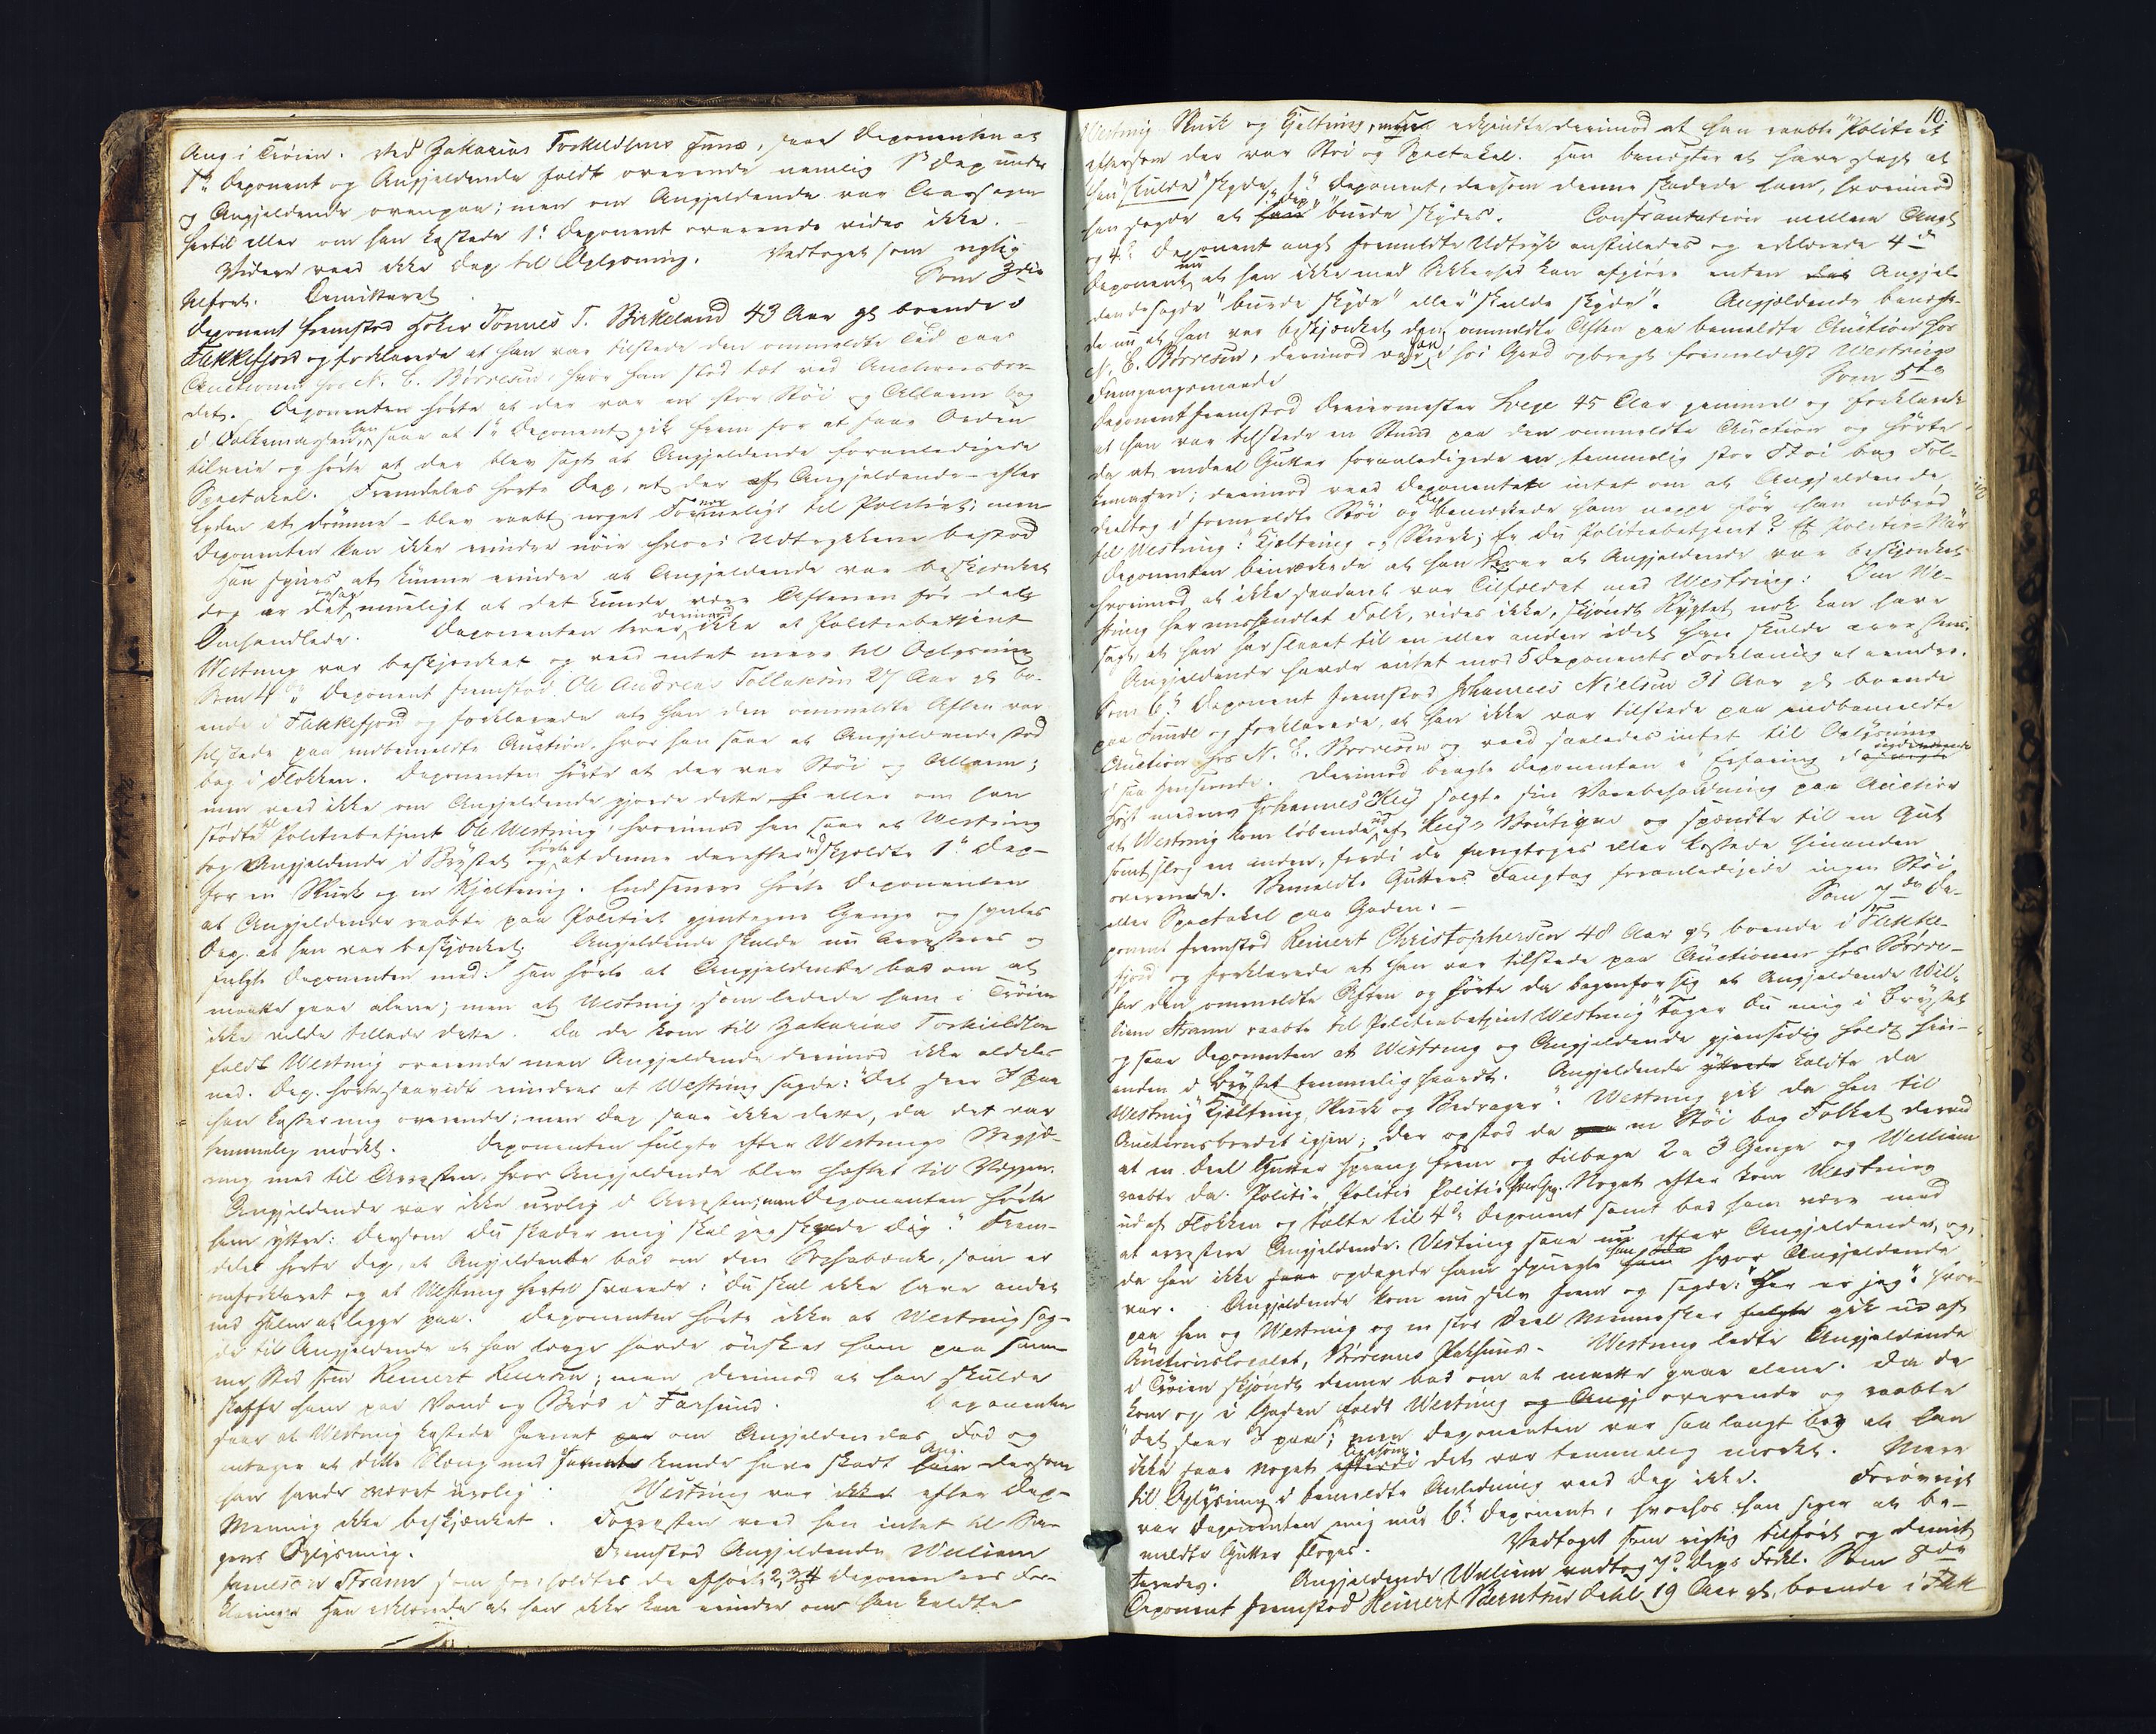 Ang i Trøien. Ved Zakarias Torkildsens Huus, saae Deponenten at
1ste Deponent og Angjeldende faldt overende nemlig 1ste Dep under
og Angjeldende ovenpaa; men om Angjeldende var Aarsagen
hertil eller om han kastede 1ste Deponent overende vides ikke.
Videre veed ikke Dep til Oplysning. Vedtaget som rigtig
tilført. Demitteret. Som 3die
Deponent fremstod Hoker Tønnes T. Birkeland 43 Aar gl boende i
Flekkefjord og forklarede at han var tilstede den ommeldte Tid paa
Auctionen hos N. C. Børresen, hvor han stod tæt ved Auctionsbor-
det. Deponenten hørte at der var en stor Støi og Allarm bag
i Folkemassen, han saae at 1ste Deponent gik frem for at faae Orden
tilveie og hørte at der blev sagt at Angjeldende foranledigede
Spectakel. Fremdeles hørte Dep, at der af Angjeldende - efter
Lyden at dømme - blev raabt noget Fornærmeligt til Politiet; men
Deponenten kan ikke erindre nøie hvori Udtrykkene bestod
Han synes at kunne erindre at Angjeldende var beskjænket
dog er det muligt at det kunde være Aftenen før dette
Omhandlede. Deponenten troer derimod ikke at Politiebetjent
Westring var beskjænket og veed intet mere til Oplysning
Som 4de Deponent fremstod Ole Andreas Tollaksen 27 Aar gl bo-
ende i Flekkefjord og forklarede at han den ommeldte Aften var
tilstede paa indbemeldte Auction, hvor han saae at Angjeldende stod
bag i Flokken. Deponenten hørte at der var Støi og Allarm;
men veed ikke om Angjeldende gjorde dette eller om han
stødte til Politiebetjent Ole Westring, hvorimod han saae at Westring
tog Angjeldende i Brystet og hørte at denne derefter udskjeldte 1ste Dep-
for en Skurk og en Kjeltring. End senere hørte Deponenten
at Angjeldende raabte paa Politiet gjentagne Gange og syntes
Dep. at han var beskjænket. Angjeldende skulde nu Arresteres og
fulgte Deponenten med. Han hørte at Angjeldende bad om at
maatte gaae alene; men at Westring, som ledede ham i Trøien
ikke vilde tillade dette. Da de kom til Zakarias Torkildsen
faldt Westring overende men Angjeldende derimod ikke aldeles
ned. Dep. hørte saavidt erindres at Westring sagde: "Det seer I paa
han kaster mig overende; men Dep saae ikke dette, da det var
temmelig mørkt. Deponenten fulgte efter Westrings Begjæ-
ring med til Arresten, hvor Angjeldende blev hæftet til Væggen.
Angjeldende var ikke urolig i Arresten; men Deponenten hørte
ham yttre: Dersom Du skader mig skal jeg skyde Dig." Frem-
deles hørte Dep, at Angjeldende bad om den Brisabænk, som er
omforklaret og at Westring hertil svarede: "Du skal ikke have andet
end Halm at ligge paa. Deponenten hørte ikke at Westring sag-
de til Angjeldende at han længe havde ønsket ham paa sam-
me Sted som Reinert Reiersen; men derimod at han skulde
skaffe ham paa Vand og Brød i Farsund. Deponenten
saae at Westring kastede Jernet om Angjeldendes Fod og
antager at dette Slæng med Jernet kunde have skadt Ang. dersom
han havde været urolig. Westring var efter Dep-
Mening ikke beskjænket. Forresten veed han intet til Sa-
gens Oplysning. Fremstod Angjeldende William
Jameson Strann som foreholdtes de afhørte 2, 3, 4 Deponenters For-
klaringer. Han erklærede at han ikke kan erindre om han kaldte
10.
Westring Skurk og Kjeltring, men erkjendte derimod at han raabte "Politiet
eftersom der var Støi og Spectakel. Han benegter at have sagt at
han "skulde" skyde 1ste Deponent, dersom denne skadede ham, hvorimod
han sagde at 1ste Dep "burde" skydes. Confrontation mellem Angl
og 4de Deponent angl formeldte Udtryk anstilledes og erklærede 4de
Deponent nu at han ikke med Sikkerhed kan afgjøre enten Angjel-
dende sagde "burde skyde" eller "skulde skyde". Angjældende benegte-
de nu at han var beskjænket den ommeldte Aften paa bemeldte Auction hos
N. C. Børresen, derimod var han i høi Grad opbragt formedelst Westrings
Fremgangsmaade Som 5te
Deponent fremstod Dreiermester Svege 45 Aar gammel og forklarede
at han var tilstede en Stund paa den ommeldte Auction og hørte
da at endeel Gutter foranledigede en temmelig stor Støi bag Fol-
kemassen; derimod veed Deponenten intet om at Angjeldende
deeltog i formeldte Støi og bemærkede ham neppe før han udbrød
til Westring: "Kjeltring og Skurk; Er du Politiebetjent? Et Politie-Nar
Deponenten bemærkede at han troer at Angjeldende var beskjænket
hvorimod at ikke saadant var Tilfældet med Westring: Om We-
string har mishandlet Folk, vides ikke, skjøndt Rygtet nok kan have
sagt, at han har slaaet til en eller anden idet han skulde arrestere.
Angjeldende havde intet mod 5 Deponents Forklaring at erindre.
Som 6te Deponent fremstod Johannes Nielsen 31 Aar gl boende
paa Sunde og forklarede, at han ikke var tilstede paa indbemeldte
Auction hos N. C. Børresen og veed saaledes intet til Oplysning
i saa Henseende. Derimod bragte Deponenten i Erfaring i indeværende
Høst medens Johannes Keij solgte sin Varebeholdning paa Auction
at Westring kom løbende ud af Keijs Boutique og spændte til en Gut
samt slog en anden, fordi de fangtoges eller kastede hinanden
overende. Bemeldte Gutters Fangtag foranledigede ingen Støi
eller Spectakel paa Gaden. - Som 7de De-
ponent fremstod Reinert Christophersen 48 Aar gl boende i Flekke-
fjord og forklarede at han var tilstede paa Auctionen hos Børre-
sen den ommeldte Aften og hørte da bagenfor sig at Angjeldende Wil-
liam Strann raabte til Politiebetjent Westring "Tager Du mig i Brystet
og saae Deponenten at Westring og Angjeldende gjensidig holdt hin-
anden i Brystet temmelig haardt. Angjeldende kaldte da
Westring "Kjeltring, Skurk og Bedrager". Westring gik da hen til
Auctionsbordet igjen; der opstod da en Støi bag Folket derved
at en Deel Gutter sprang frem og tilbage 2 a 3 Gange og William
raabte da: Politie Politie Politie. Noget efter kom Westring
ud af Flokken og talte til 4de Deponent samt bad ham være med
at arrestere Angjeldende. Westring saae efter Angjeldende, og,
da han ikke opdagede ham spurgte han hvor Angjeldende
var. Angjeldende kom nu selv frem og sagde: "Her er jeg" hvor-
paa han og Westring og en stor Deel Mennesker gik ud af
Auctionslocalet, Børresens Pakhuus. Westring ledte Angjeldende
i Trøien skjøndt denne bad om at maatte gaae alene. Da de
kom op i Gaden faldt Westring overende og raabte
"det seer I paa"; men Deponenten var saa langt bag at han
ikke saae Noget ligesom det var temmelig mørkt. Mere
til Oplysning i bemeldte Anledning veed Dep ikke. Forøvrigt
var Deponenten enig med 6te Deponent, hvorhos han siger at be-
meldte Gutter sloges. Vedtaget som rigtig tilført og demit-
teredes. Angjeldende William vedtog 7de Deps Forkl. Som 8de
Deponent fremstod Reinert Berntsen Dahl 19 Aar gl. boende i Flek